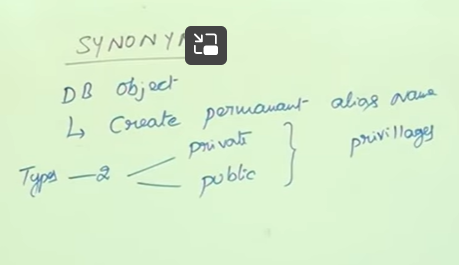 SYNONY
DB object
↳ Create permanant alias name
Types — 2 private privillages
public